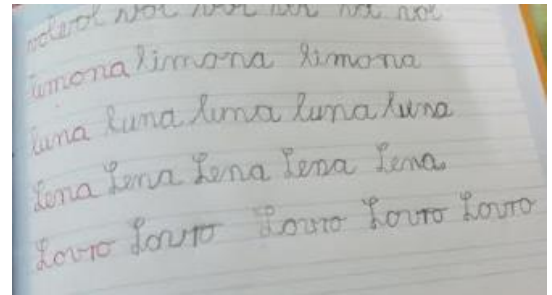 vol vol vol vol vol
limona limona limona
luna luna luna luna luna
Lena Lena Lena Lena Lena
Lovro Lovro Lovro Lovro Lovro